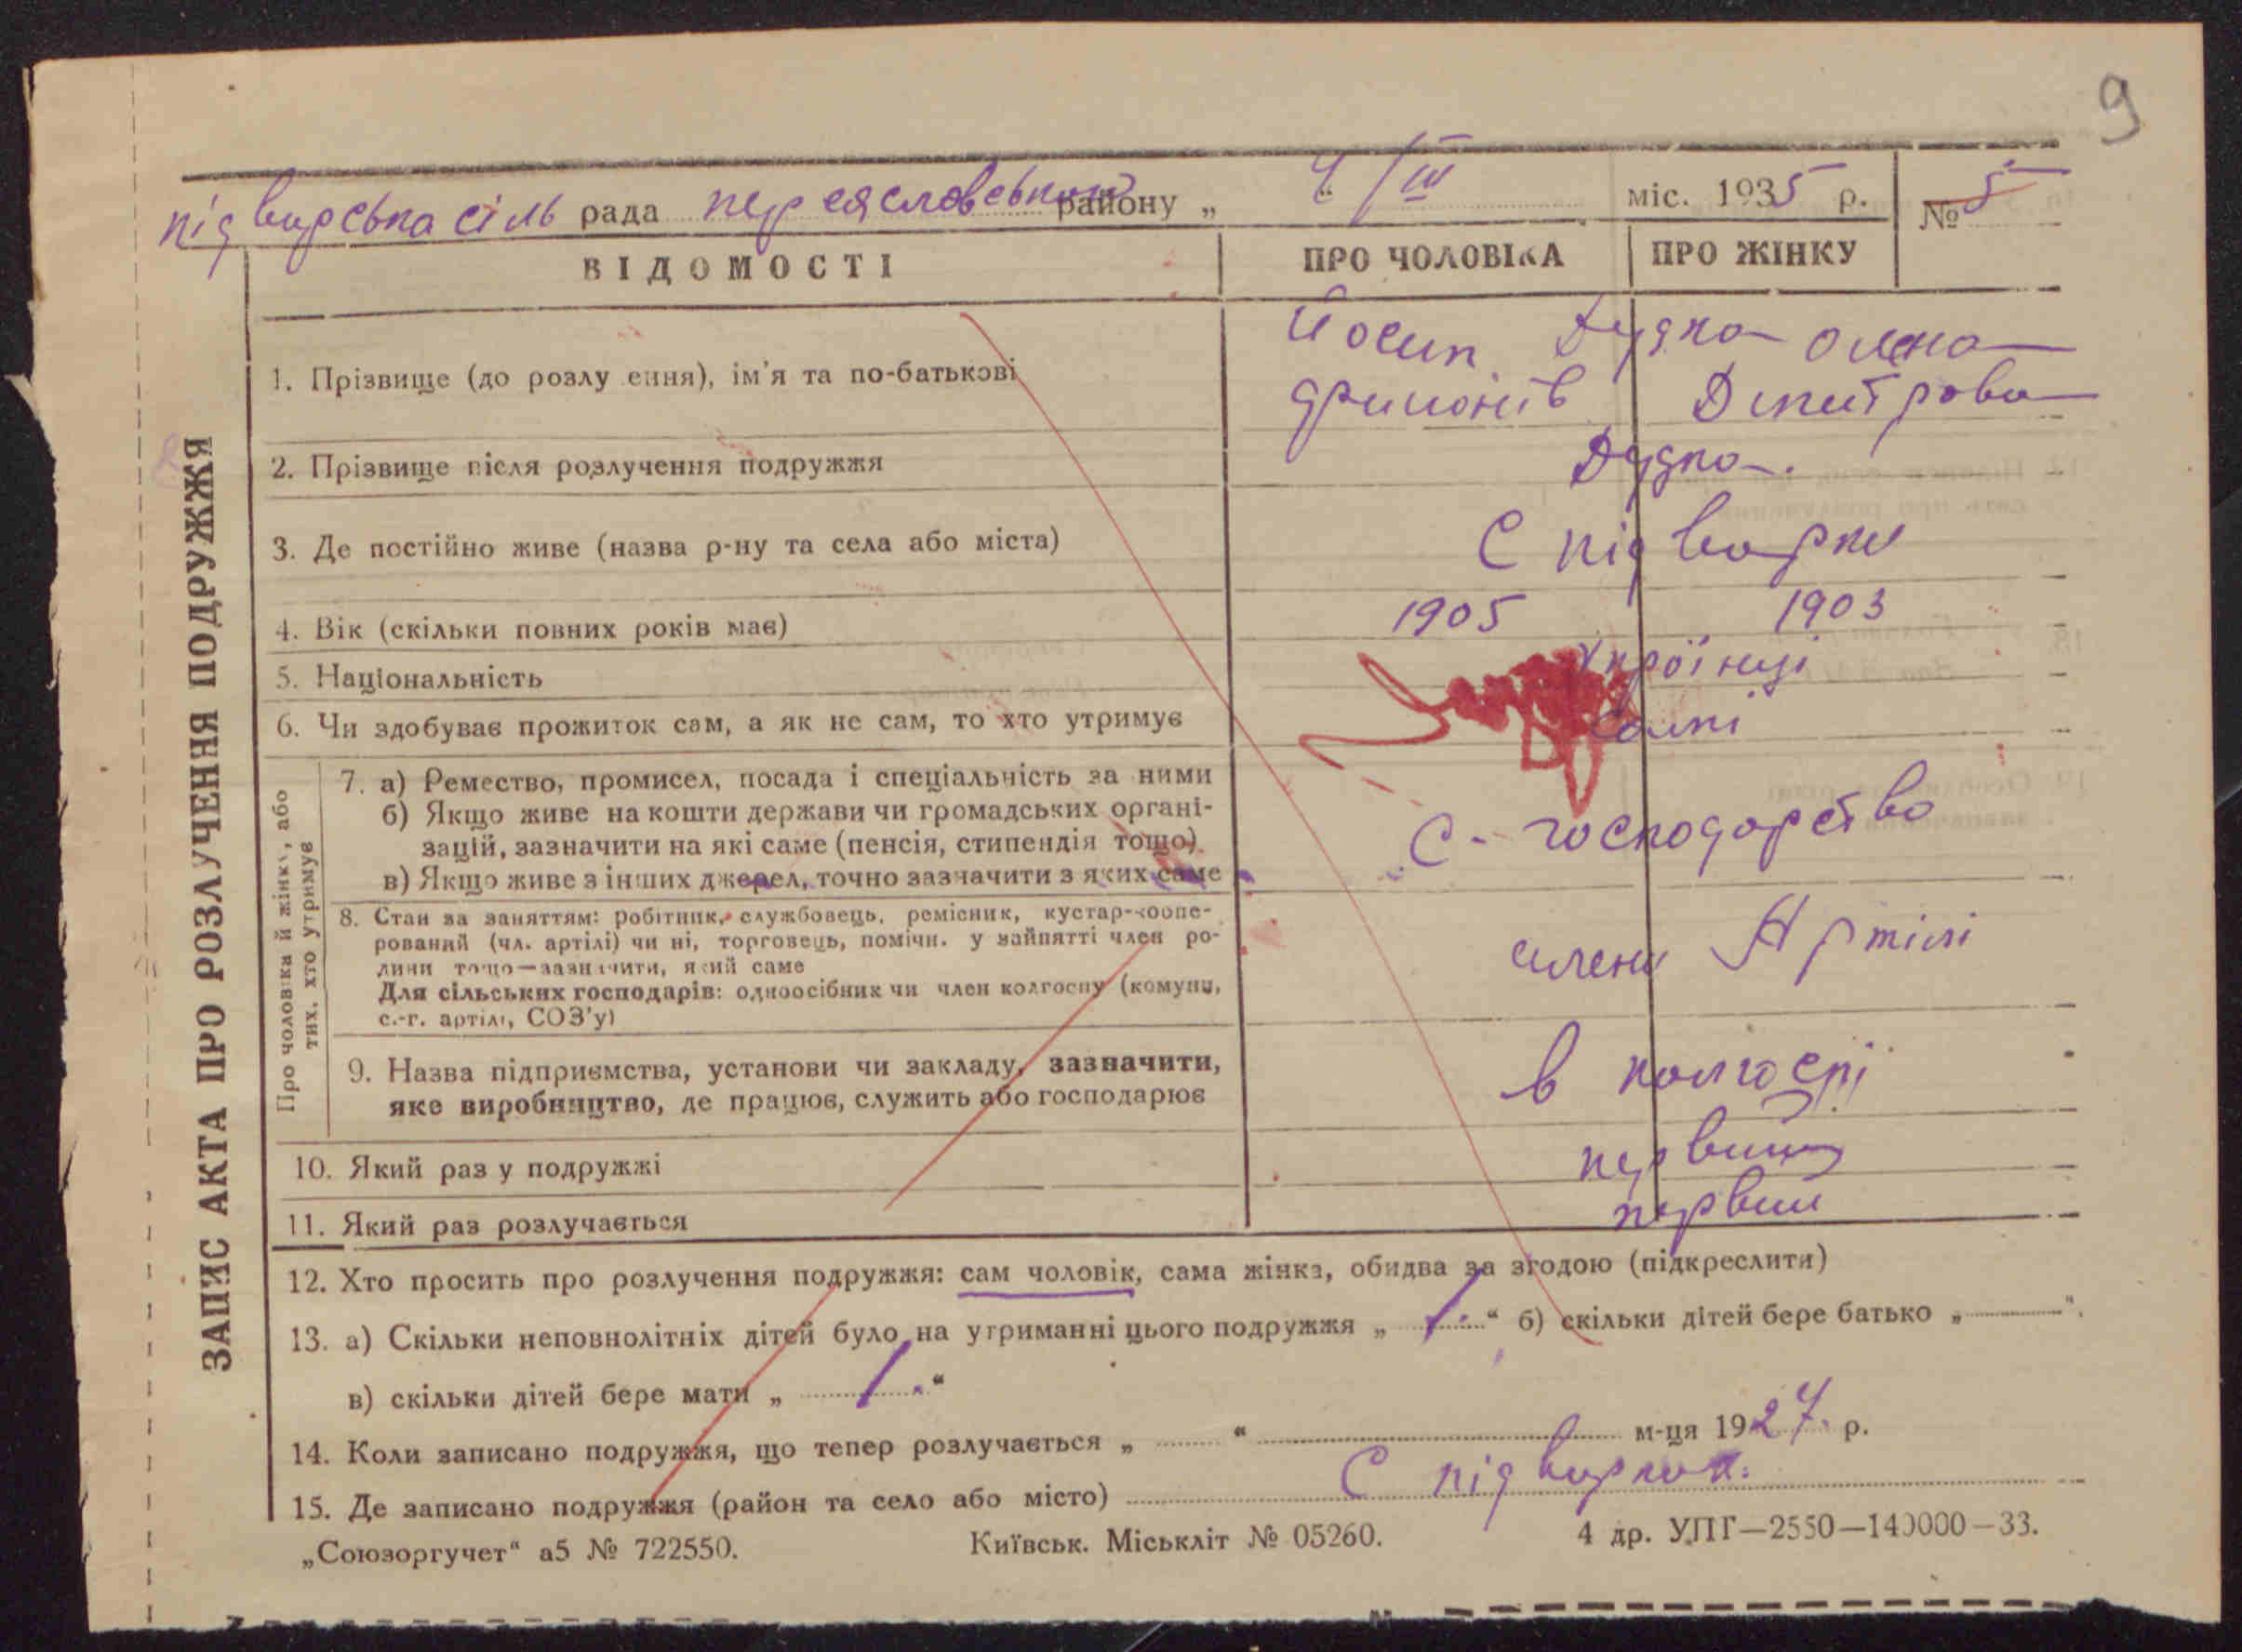 9
підварська сіль рада переяславського району „ 4 “ /III міс. 1935 р. № 5
ВІДОМОСТІ ПРО ЧОЛОВІКА ПРО ЖІНКУ
ЗАПИС АКТА ПРО РОЗЛУЧЕННЯ ПОДРУЖЖЯ
1. Прізвище (до розлу ення), ім'я та по-батькові
Йосип Дудка олена
Дмитрова
2. Прізвище після розлучення подружжя Дудка.
3. Де постійно живе (назва р-ну та села або міста) С підварки
4. Вік (скільки повних років має) 1905 1903
5. Національність Украінці
6. Чи здобуває прожиток сам, а як не сам, то хто утримує самі
Про чоловіка й жінку, або
тих, хто утримує
7. а) Ремество, промисел, посада і спеціальність за ними
б) Якщо живе на кошти держави чи громадських органі-
зацій, зазначити на які саме (пенсія, стипендія тощо)
в) Якщо живе з інших джерел, точно зазначити з яких саме
С - господарство
8. Стан за заняттям: робітник, службовець, ремісник, кустар-коопе-
рований (чл. артілі) чи ні, торговець, помічн. у занятті член ро-
дини тощо—зазначити, який саме
Для сільських господарів: одноосібник чи член колгоспу (комуни,
с.-г. артілі, СОЗ'у)
члени Артілі
9. Назва підприємства, установи чи закладу, зазначити,
яке виробництво, де працює, служить або господарює
в колгоспі
10. Який раз у подружжі первий
11. Який раз розлучається первий
12. Хто просить про розлучення подружжя: сам чоловік, сама жінка, обидва за згодою (підкреслити)
13. а) Скільки неповнолітніх дітей було на утриманні цього подружжя „ 1. “ б) скільки дітей бере батько „ — “.
в) скільки дітей бере мати „ 1. “
14. Коли записано подружжя, що тепер розлучається „ “ м-ця 1927. р.
15. Де записано подружжя (район та село або місто) С підварках.
„Союзоргучет“ а5 № 722550. Київськ. Міськліт № 05260. 4 др. УПГ—2550—140000—33.